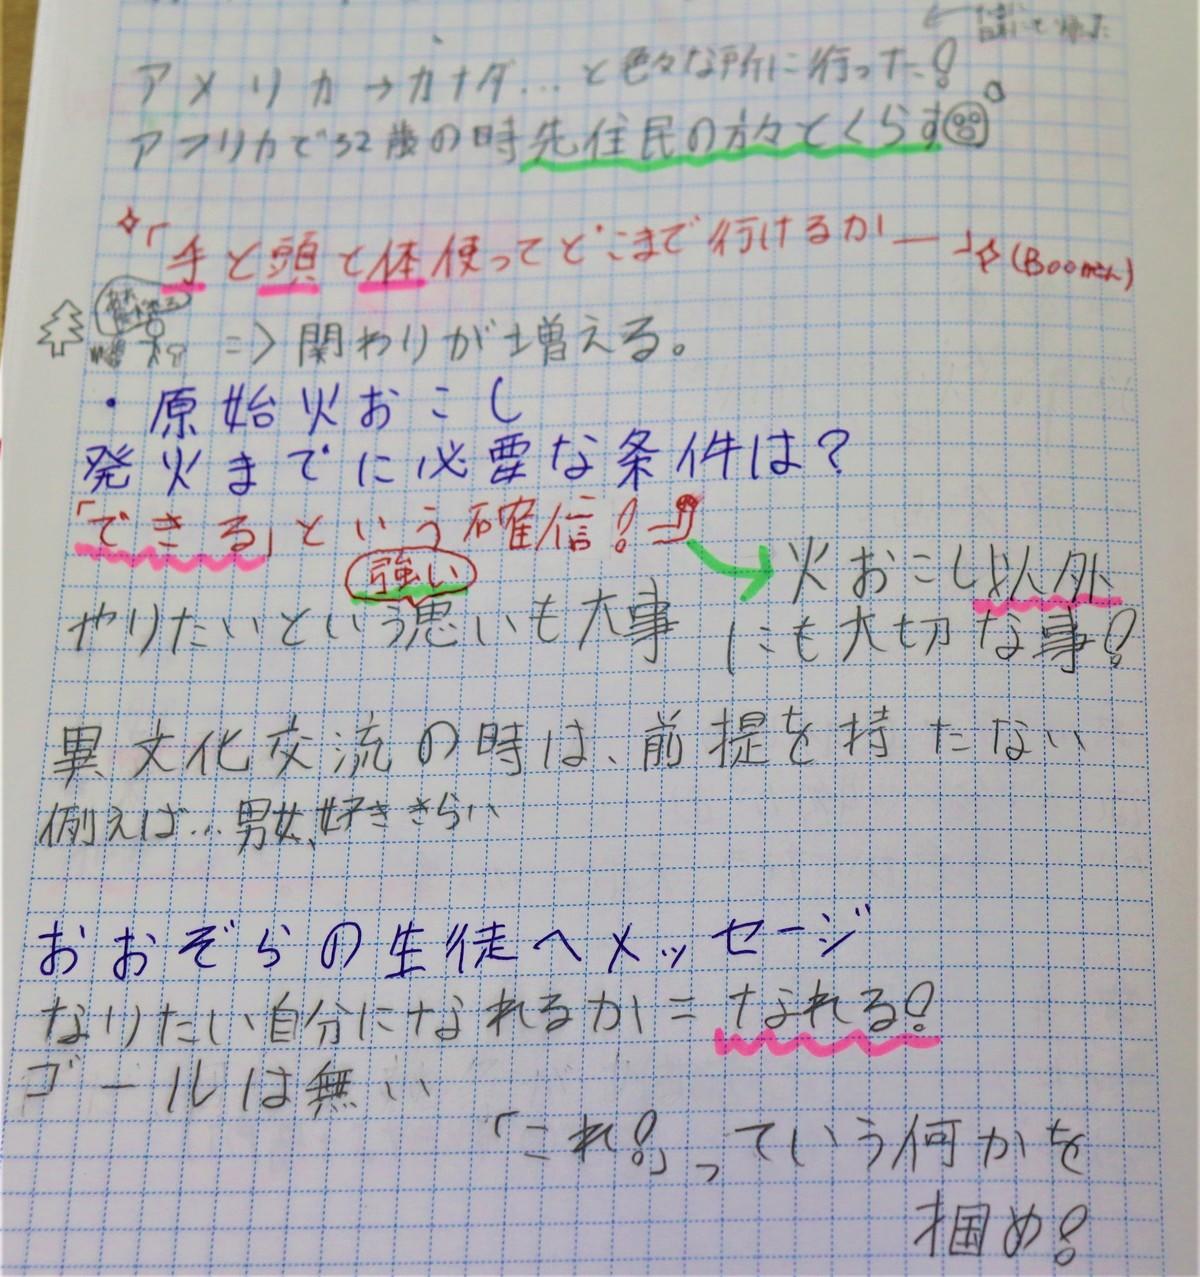 アメリカ→カナダ…と色々な所に行った!
アフリカで32歳の時先住民の方々とくらす
「手と頭と体使ってどこまで行けるかー」(Boonさん)
=>関わりが増える。
・原始火おこし
発火までに必要な条件は?
「できる」という確信!
強い
→火おこし以外
にも大切な事!
やりたいという思いも大事
異文化交流の時は、前提を持たない
例えば…男女、好ききらい
おおぞらの生徒へメッセージ
なりたい自分になれるか=なれる!
ゴールは無い
「これ!」っていう何かを
掴め!